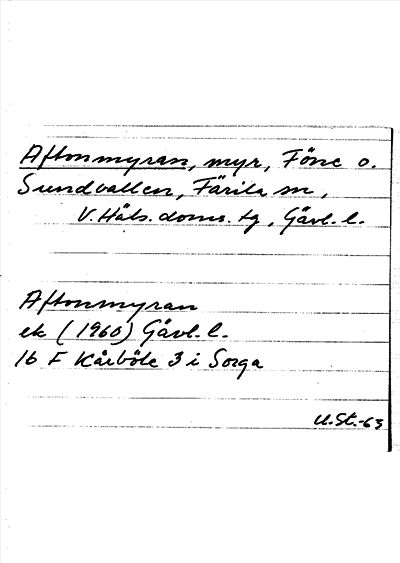 Aftonmyran, myr, Föne o.
Sundvallen, Färila sn,
V. Häls. doms. tg, Gävl. l.
Aftonmyran
ek (1960) Gävl. l.
16 F Kårböle 3 i Sorga
U.St.-63